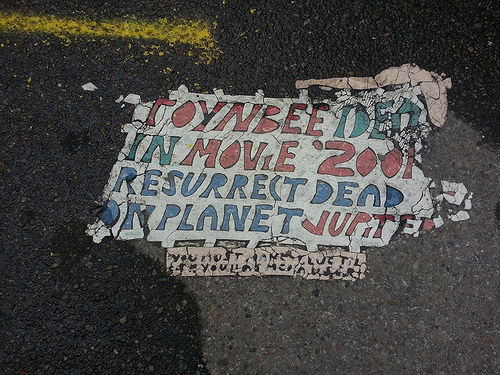 TOYNBEE IDEA
IN MOViE '2001
RESURRECT DEAD
ON PLANET JUPITER